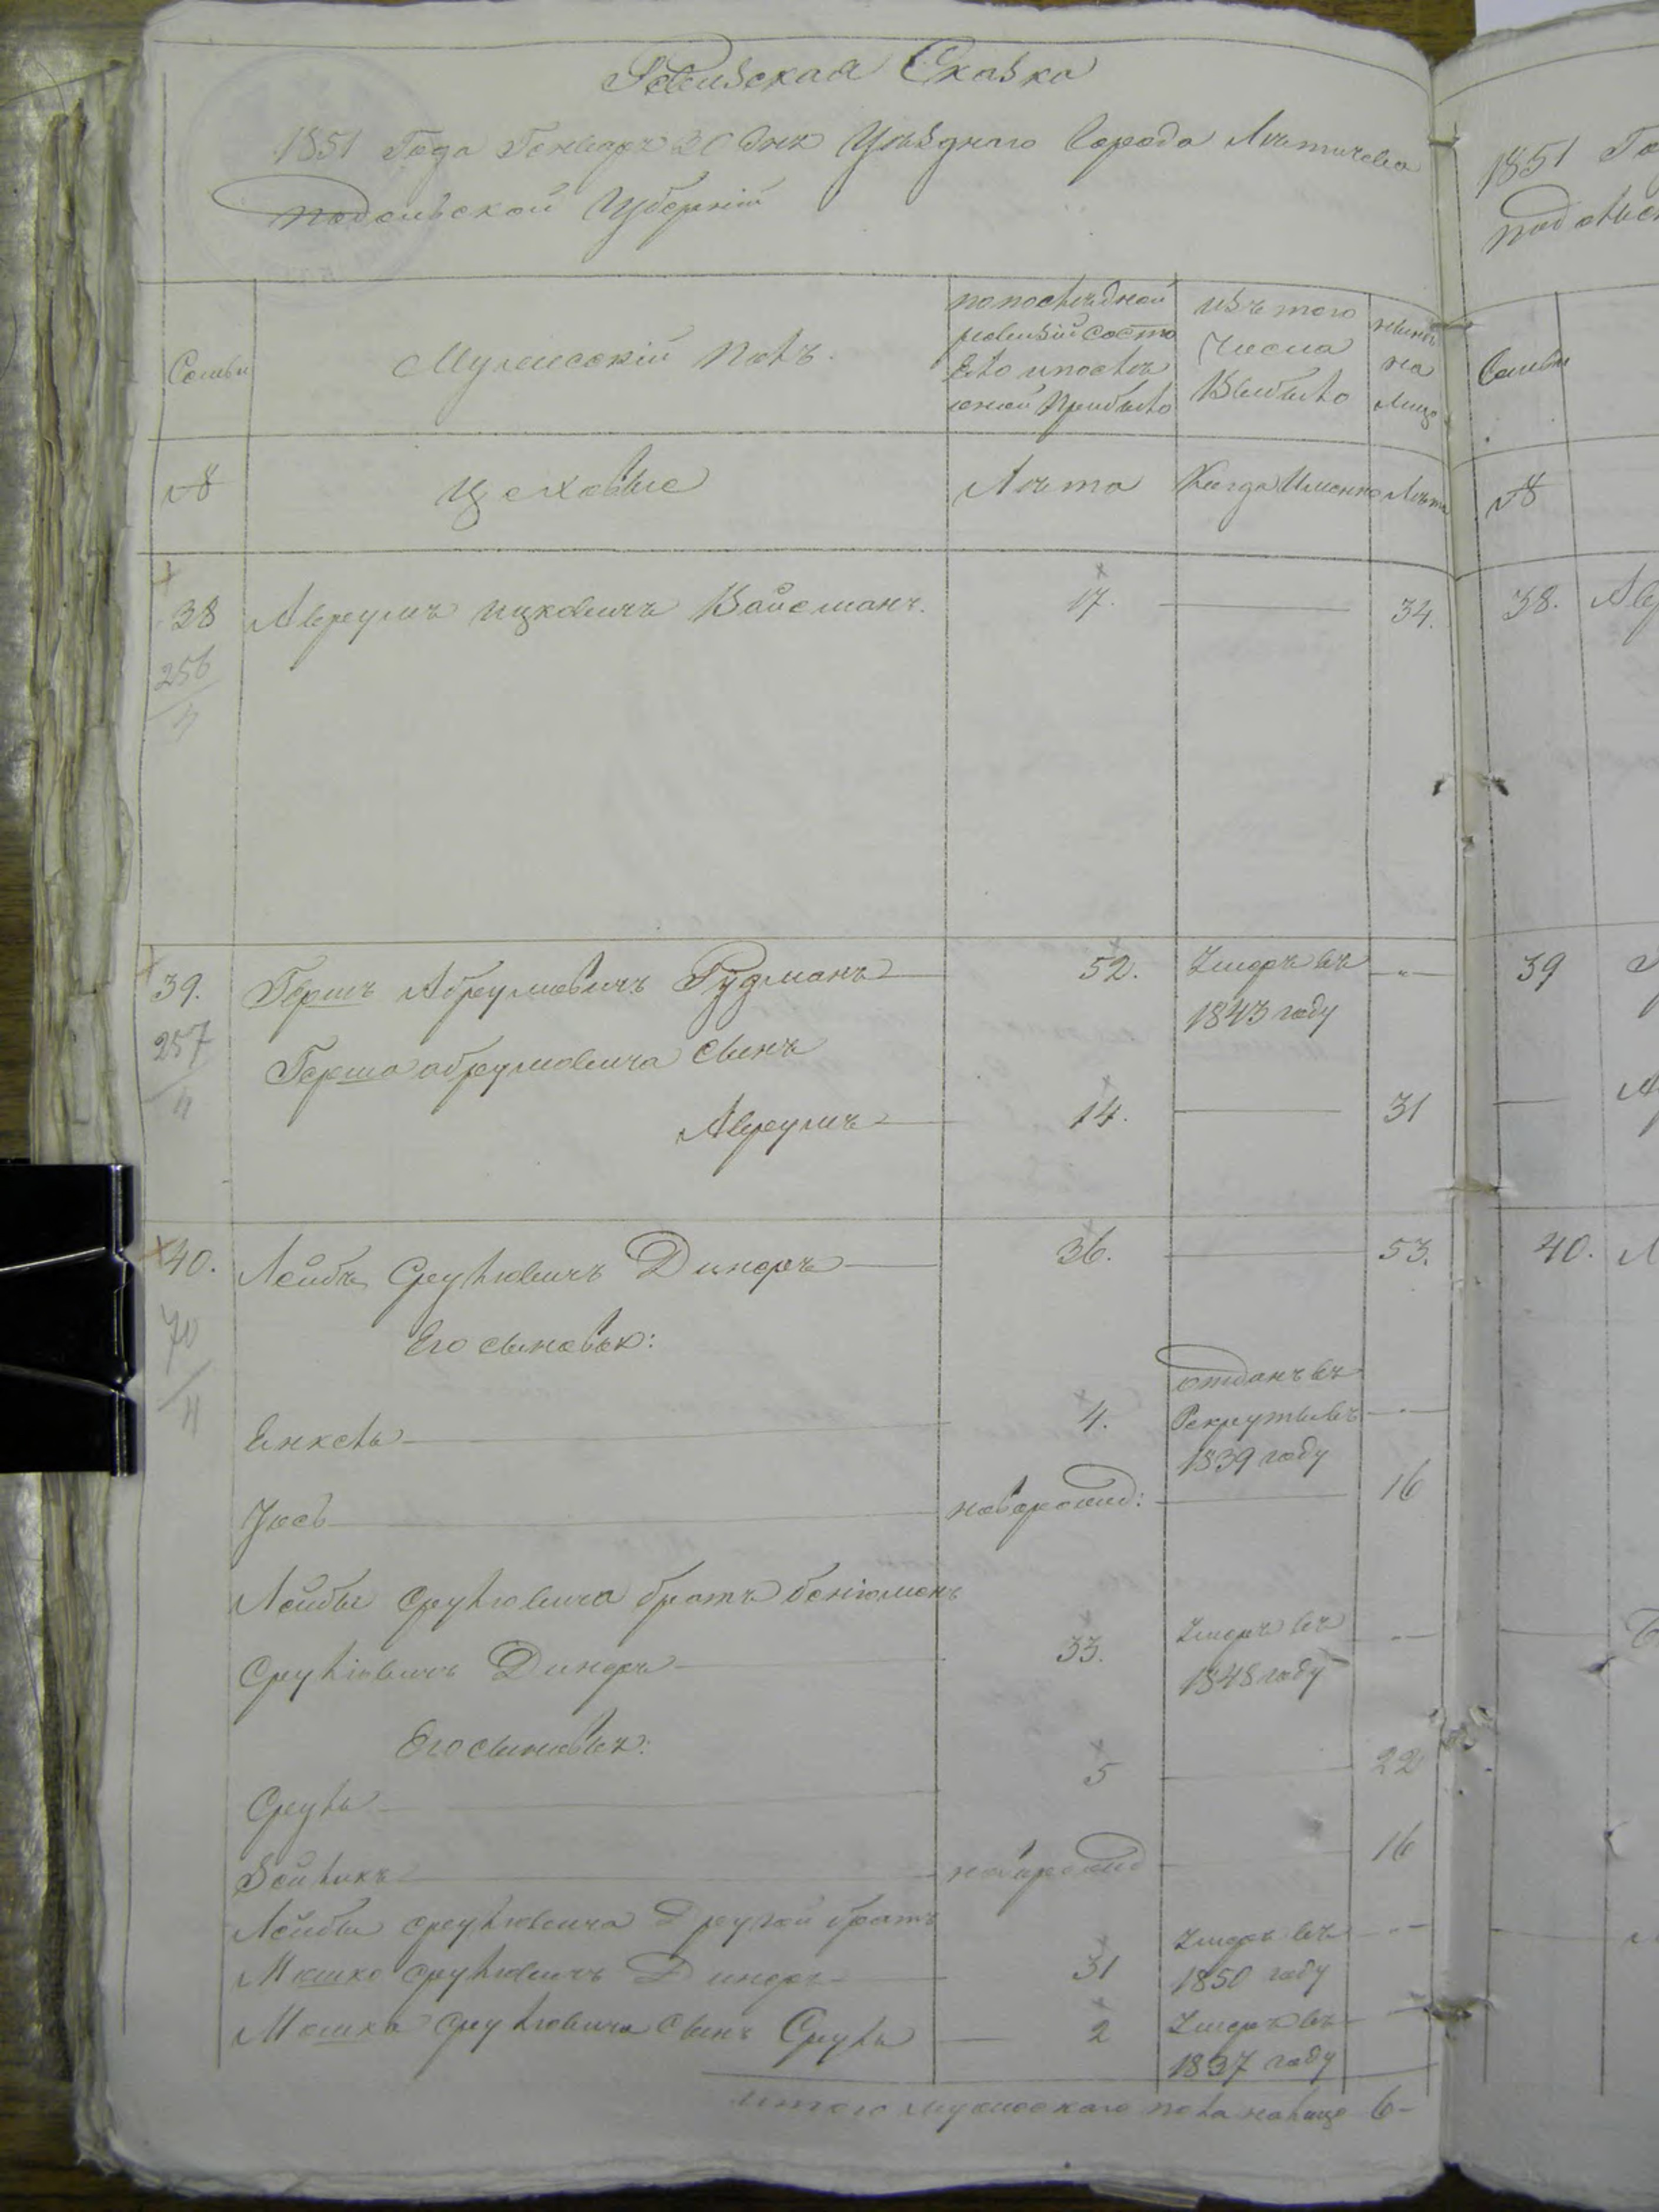 Ревизская Сказка
1851 Года Генваря 30 дня Уѣзднаго Города Лѣтичева
Подольской Губерніи
Семьи
Мужескій полъ.
по последней
ревизіи состо
яло и после
оной прибыло
изъ того
Числа
Выбыло
нынѣ
на
Лицо
№
Цеховые
Лѣта
Когда Именно
Лѣта
38
Авреумъ Ицковичъ Вайсманъ.
17.
34.
256
39.
Гершъ Абреумовичъ Гудманъ
52.
Умеръ въ
1843 году
257
Герша абреумовича сынъ
Авреумъ
14.
31
40.
Лейбъ Срулювичъ Динеръ
36.
53.
70
Его сыновья:
Янкель
4.
отданъ въ
Рекруты въ
1839 году
Іосъ
новорожд:
16
Лейбы Срулювича братъ Беніюменъ
Срулювичъ Динеръ
33.
Умеръ въ
1848 году
Его сыновья:
Сруль
5
22
Зейликъ
новорожд
16
Лейбы срулювича Другой братъ
Мошко Срулювичъ Динеръ
31
Умеръ въ
1850 году
Мошка Срулювича сынъ Сруль
2
Умеръ въ
1837 году
Итого мужескаго пола налицо 6
1851 Го
Подольск
Семьи
№
38.
Авр
39
40.